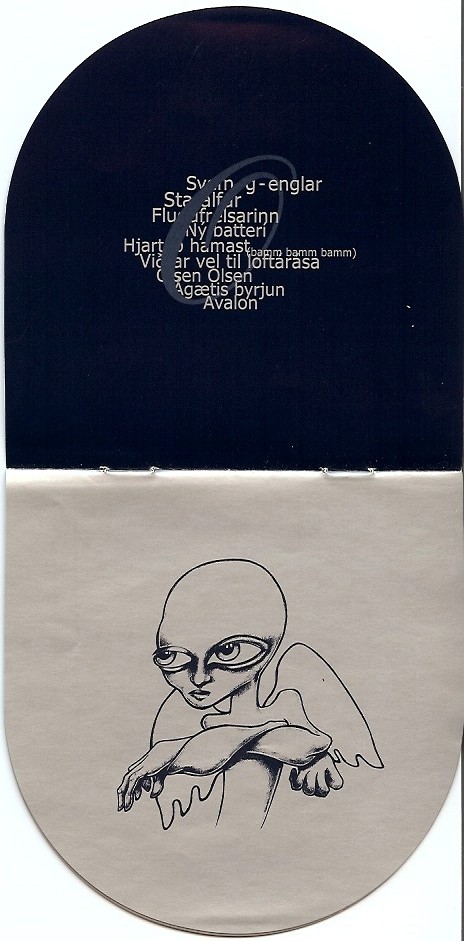 Svefn-g-englar
Starálfur
Flugufrelsarinn
Ný batterí
Hjartað hamast (bamm bamm bamm)
Viðrar vel til loftárása
Olsen Olsen
Ágætis byrjun
Avalon